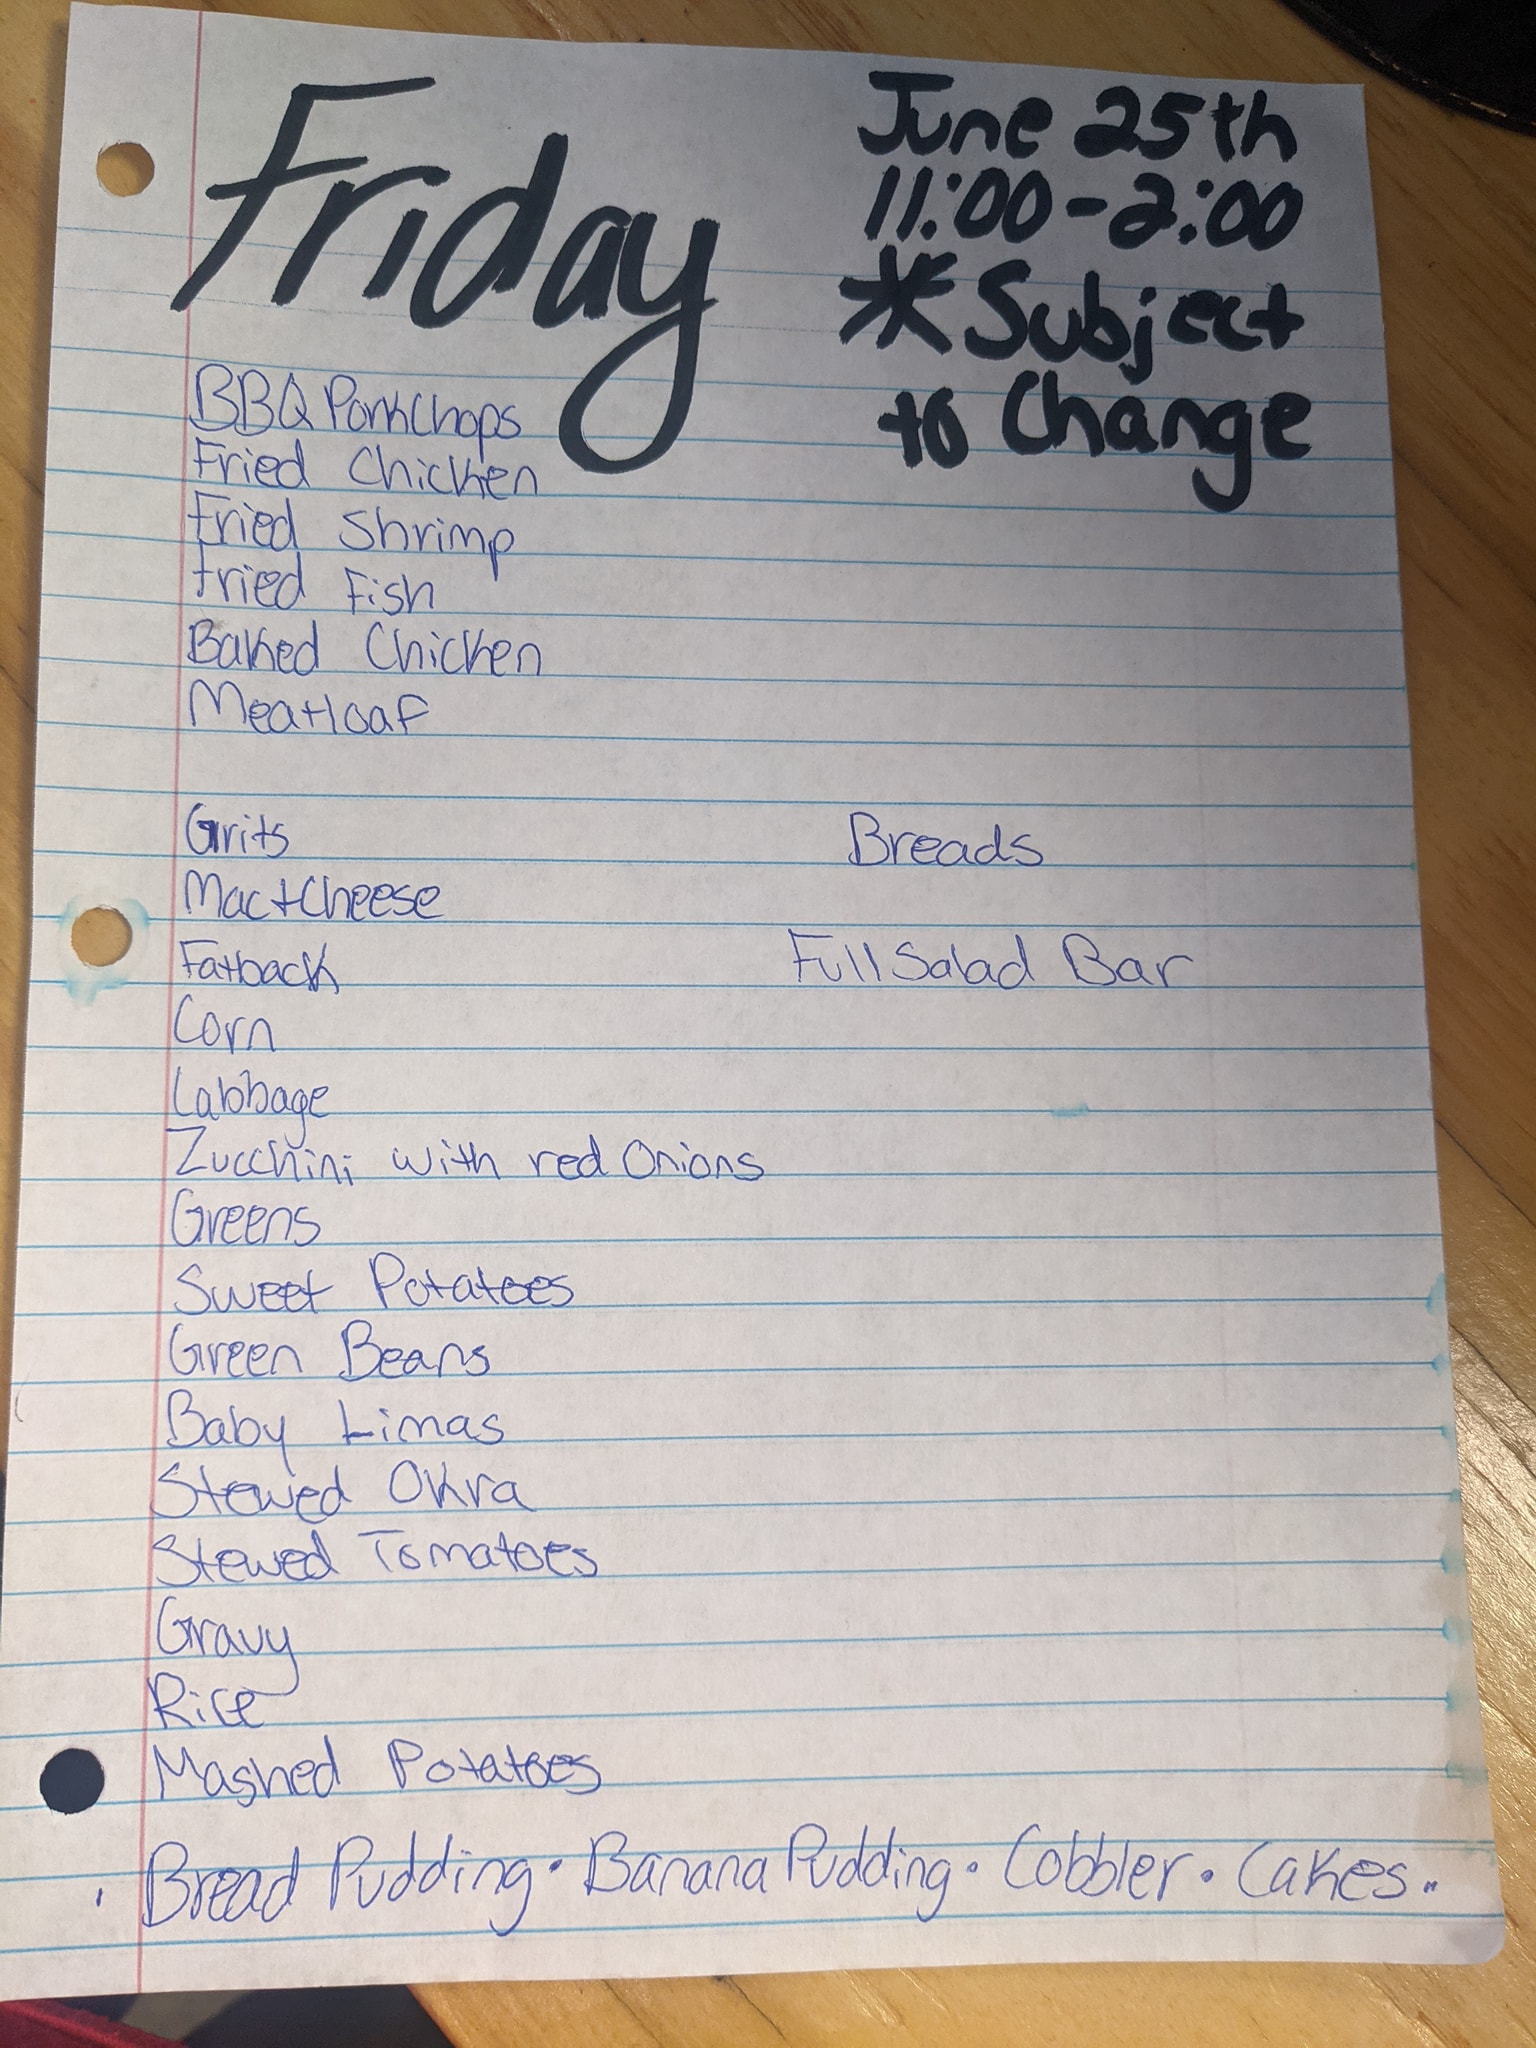 Friday
June 25th
11:00-2:00
*Subject
to Change
BBQ PorkChops
Fried Chicken
Fried Shrimp
Fried Fish
Baked Chicken
Meatloaf
Grits
Breads
Mac+Cheese
Fatback
Full Salad Bar
Corn
Cabbage
Zucchini with red Onions
Greens
Sweet Potatoes
Green Beans
Baby Limas
Stewed Okra
Stewed Tomatoes
Gravy
Rice
Mashed Potatoes
Bread Pudding · Banana Pudding · Cobbler · Cakes..